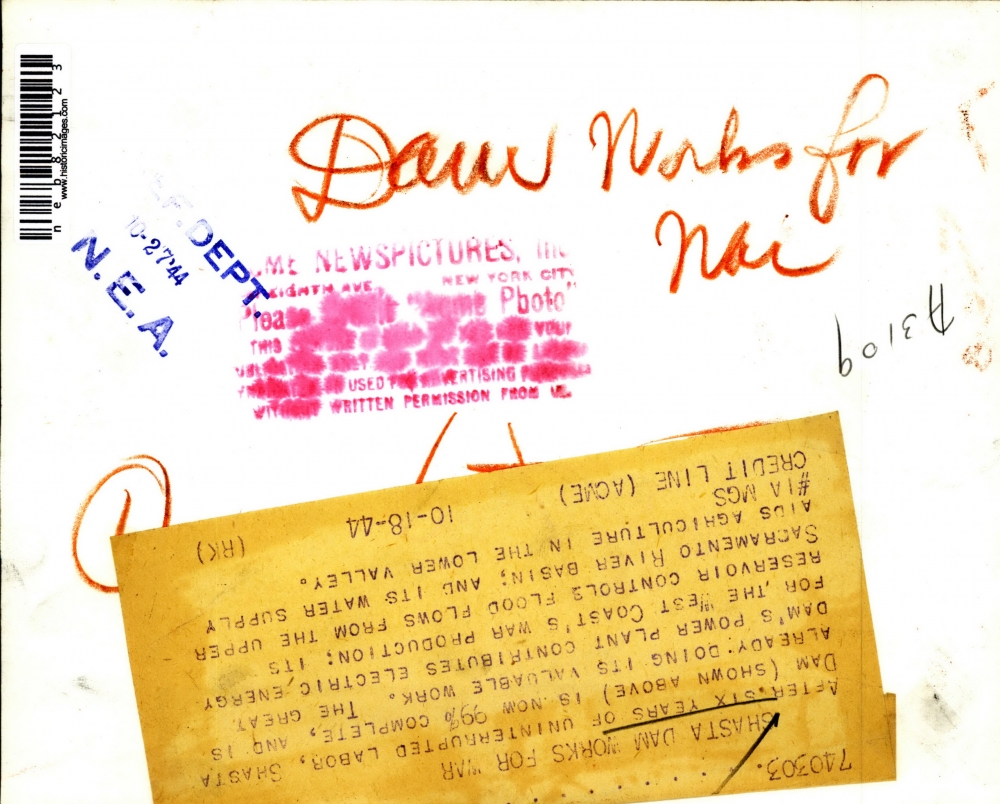 Dam Works for
War
neb82123
www.historicimages.com
DEPT.
10-27-44
N. E. A.
NEWSPICTURES,
EIGHTH AVE NEW YORK CITY
Photo"
THIS YOUR
USED FOR ADVERTISING
WITHOUT WRITTEN PERMISSION FROM
A3109
740303.
SHASTA DAM WORKS FOR WAR
AFTER SIX YEARS OF UNINTERRUPTED LABOR, SHASTA
DAM (SHOWN ABOVE) IS NOW 99% COMPLETE, AND IS
ALREADY DOING ITS VALUABLE WORK. THE GREAT
DAM'S POWER PLANT CONTRIBUTES ELECTRIC ENERGY
FOR THE WEST COAST'S WAR PRODUCTION; ITS
RESERVOIR CONTROLS FLOOD FLOWS FROM THE UPPER
SACRAMENTO RIVER BASIN; AND ITS WATER SUPPLY
AIDS AGRICULTURE IN THE LOWER VALLEY.
#IA MGS
CREDIT LINE (ACME) 10-18-44 (RK)